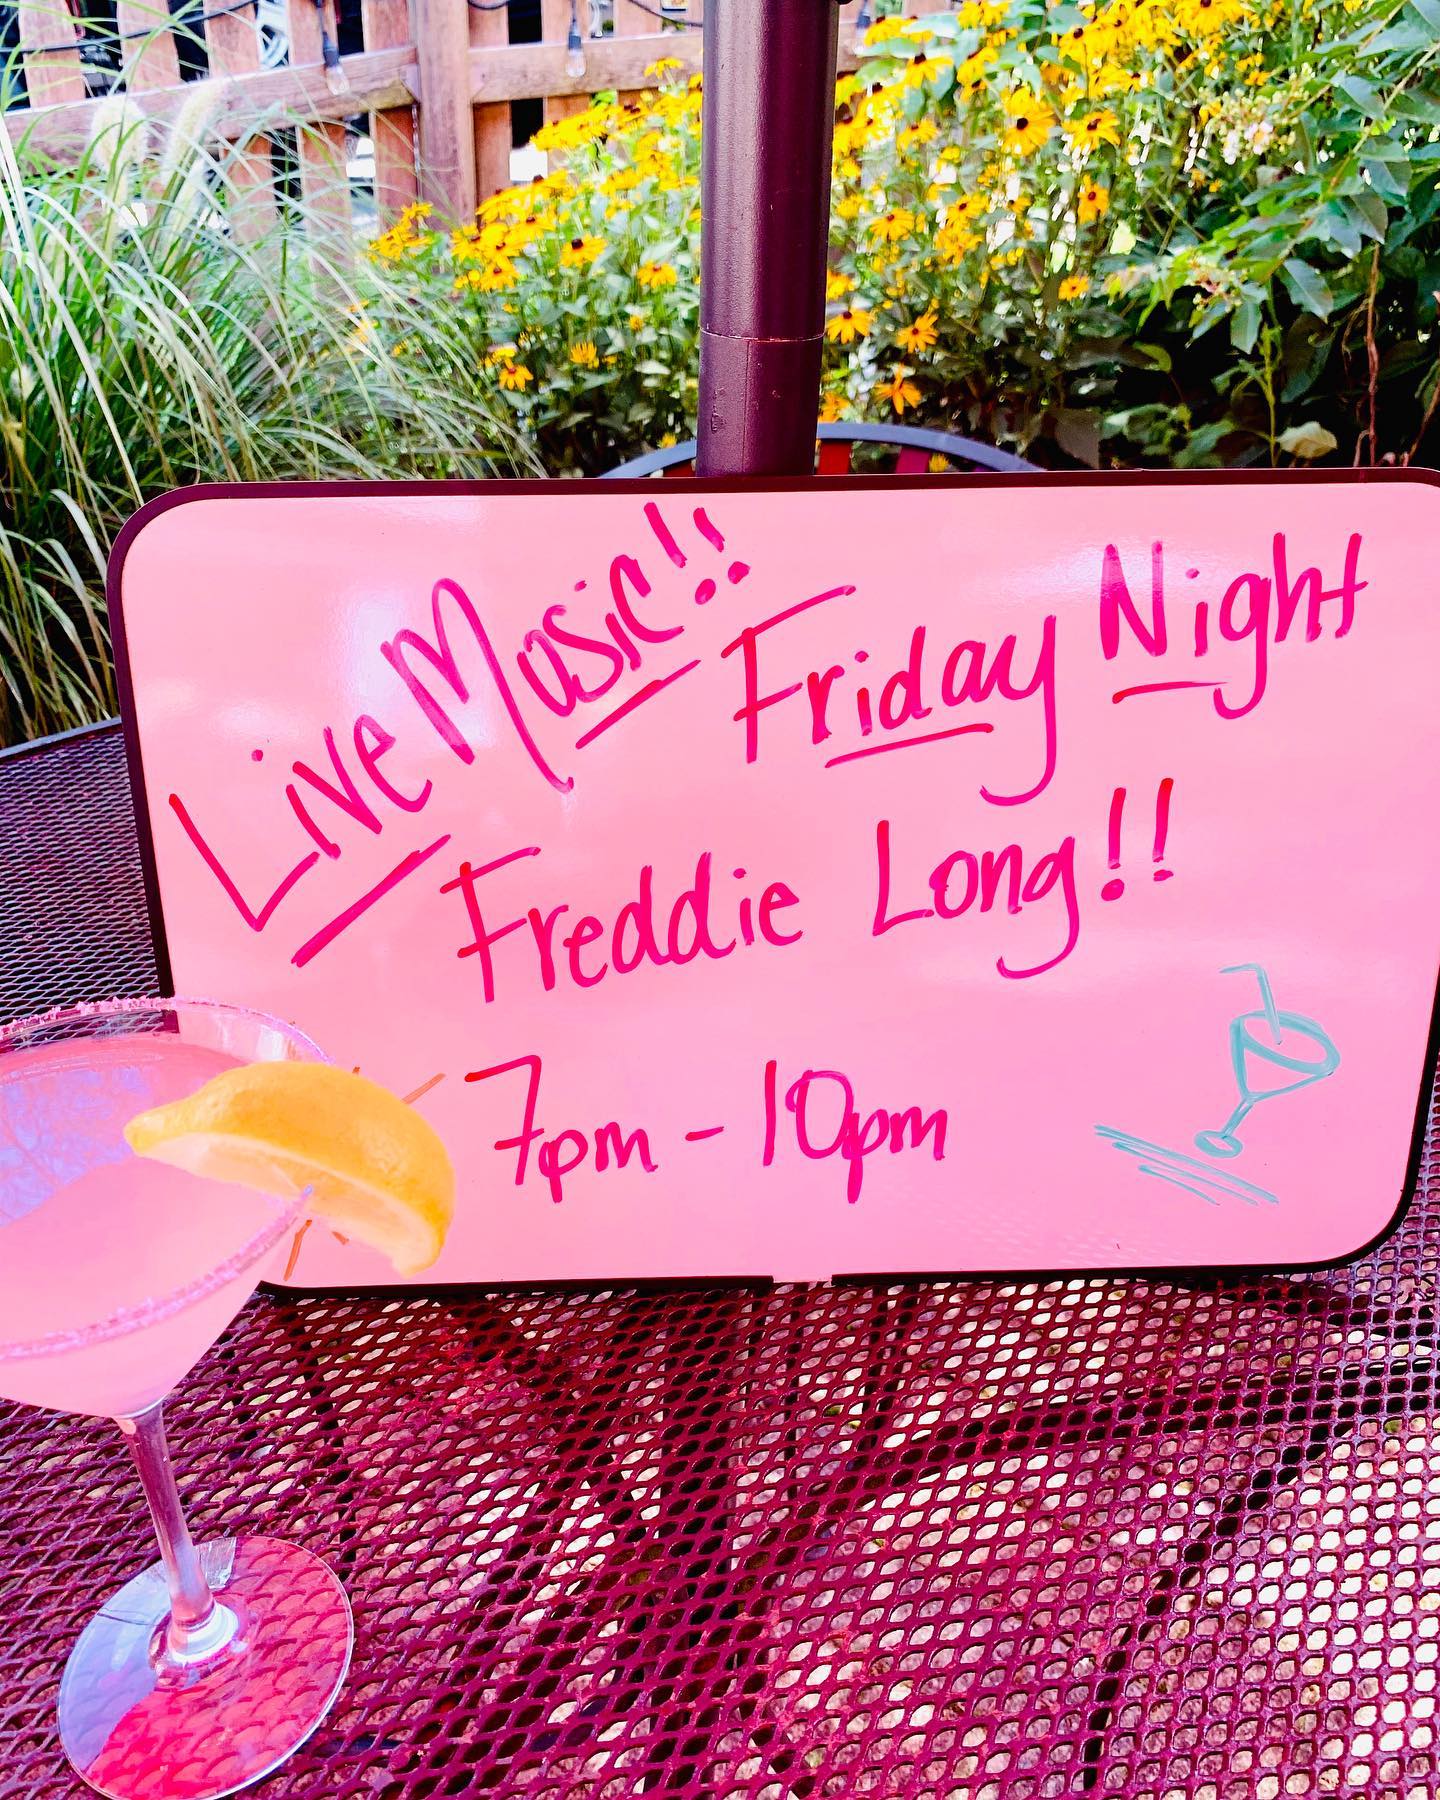 Live Music!!
Friday Night
Freddie Long!!
7pm - 10pm